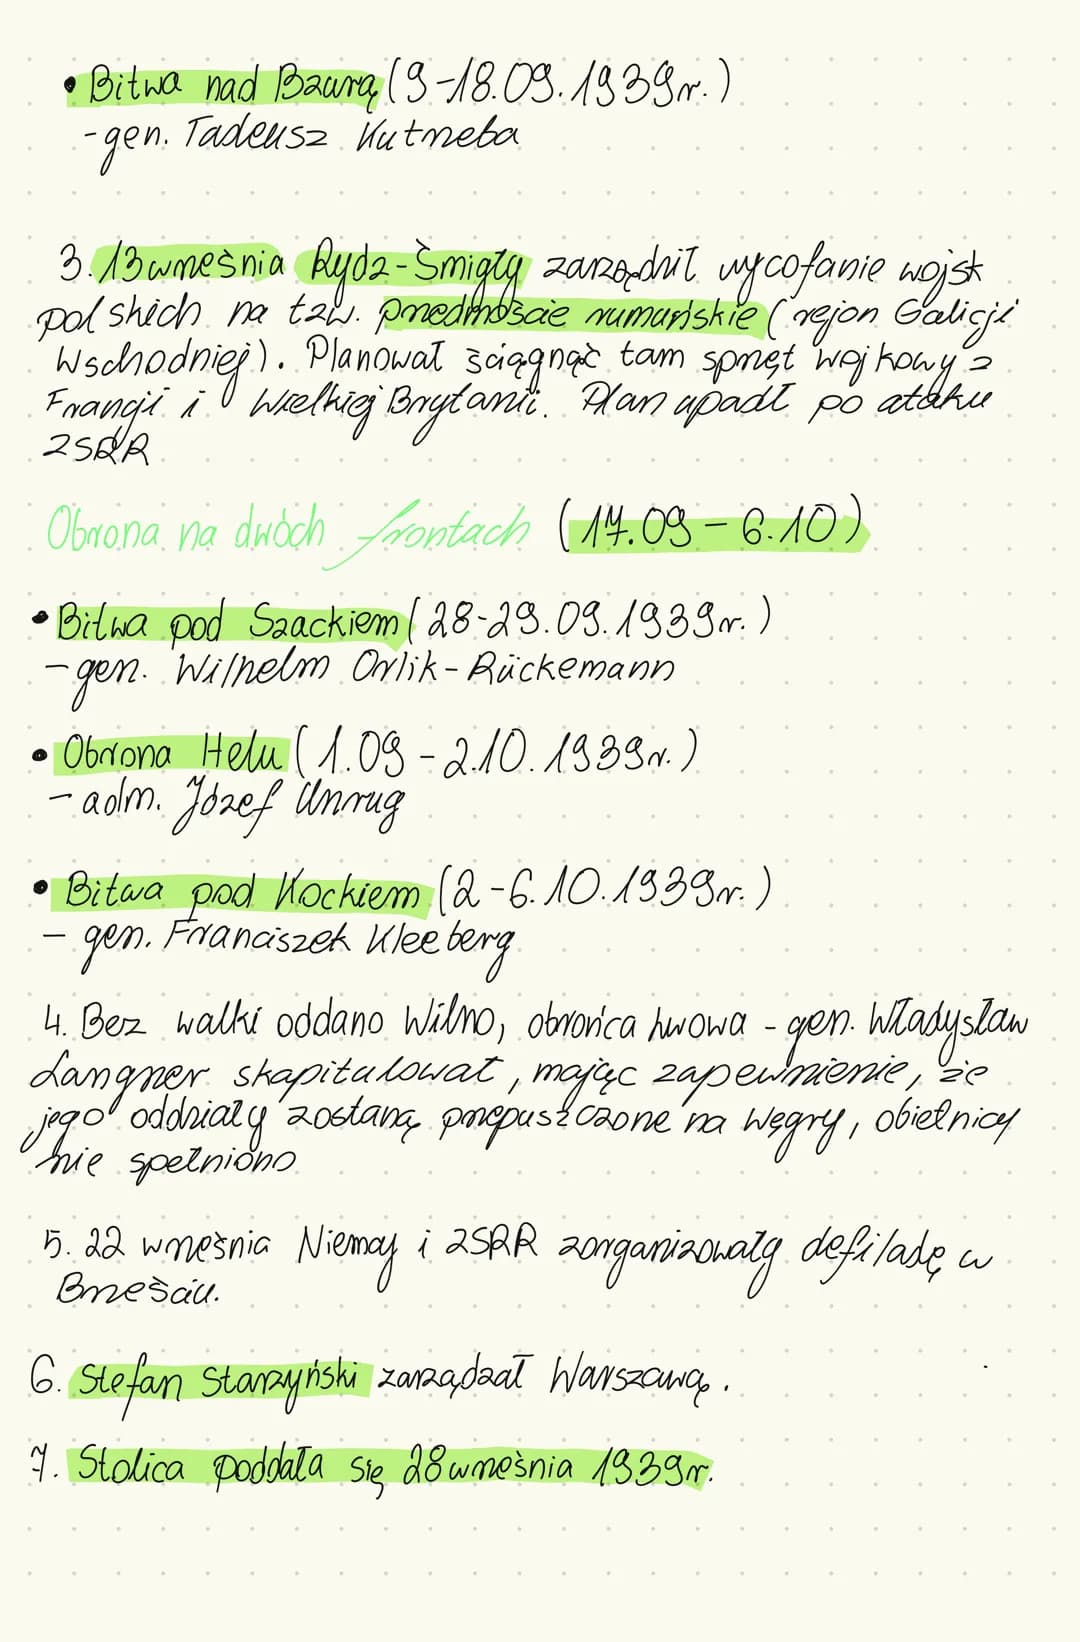 • Bitwa nad Bzurą (9-18.09.1939r.)
- gen. Tadeusz Kutrzeba
3. 13 września Rydz-Śmigły zarządził wycofanie wojsk
polskich na tzw. przedmoście rumuńskie (rejon Galicji
Wschodniej). Planował ściągnąć tam sprzęt wojkowy z
Francji i Wielkiej Brytanii. Plan upadł po ataku
ZSRR
Obrona na dwóch frontach (17.09 – 6.10)
• Bitwa pod Szackiem (28-29.09.1939r.)
- gen. Wilhelm Orlik-Rückemann
• Obrona Helu (1.09 - 2.10.1939r.)
- adm. Józef Unrug
• Bitwa pod Kockiem (2-6.10.1939r.)
- gen. Franciszek Kleeberg
4. Bez walki oddano Wilno, obrońca Lwowa - gen. Władysław
Langner skapitulował, mając zapewnienie, że
jego oddziały zostaną przepuszczone na Węgry, obietnicy
nie spełniono
5. 22 września Niemcy i ZSRR zorganizowały defiladę w
Brześciu.
6. Stefan Starzyński zarządzał Warszawą.
7. Stolica poddała się 28 września 1939r.